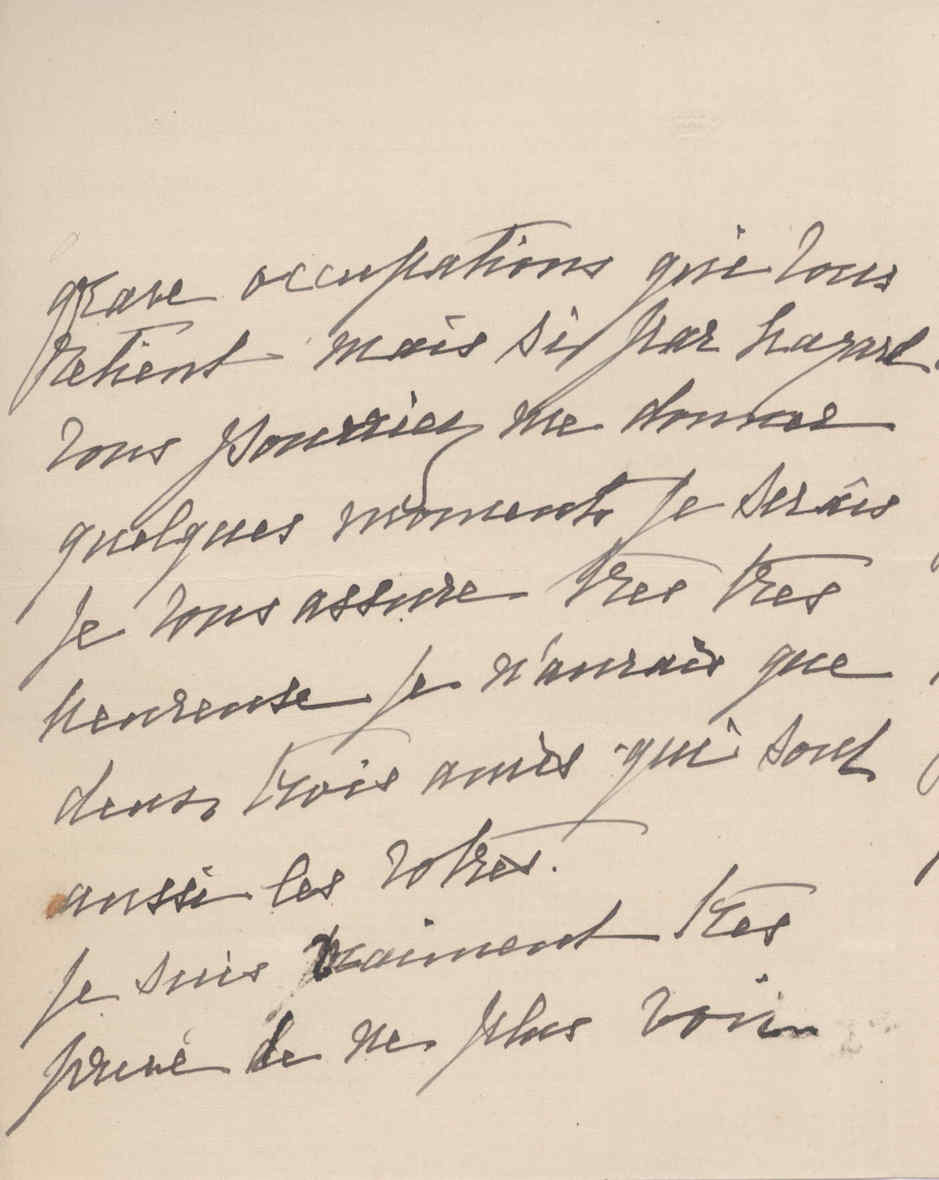 grave occupations qui vous
retient mais si par hazard
vous pourriez me donner
quelques moments je serais
je vous assure tres tres
heureuse je n'aurais que
deux trois amis qui sont
aussi les votres.
je suis vraiment tres
privé de ne plus voir